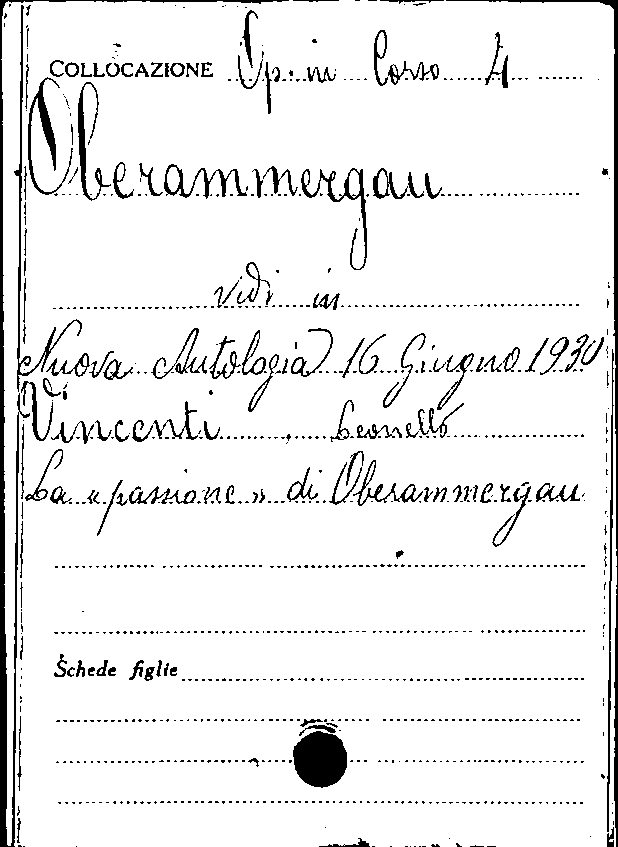 COLLOCAZIONE Op. in Corso 4
Oberammergau
vidi in
Nuova Antologia 16 Giugno 1930
Vincenti, Leonello
La «passione» di Oberammergau
Schede figlie